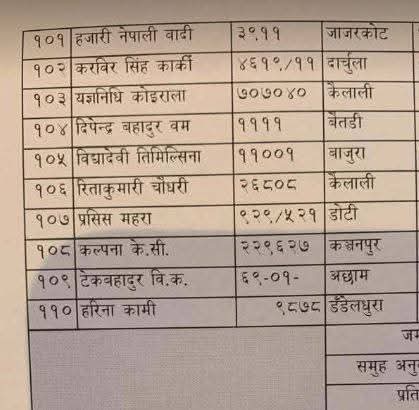 १०१ हजारी नेपाली वादी ३९.११ जाजरकोट
१०२ करविर सिंह कार्की ४६१९/११ दार्चुला
१०३ यज्ञनिधि कोइराला ७०७०४० कैलाली
१०४ दिपेन्द्र बहादुर वम ११११ बैतडी
१०५ विद्यादेवी तिमिल्सिना ११००१ बाजुरा
१०६ रिताकुमारी चौधरी २६८०८ कैलाली
१०७ प्रसिस महरा ९२९/५२१ डोटी
१०८ कल्पना के.सी. २२९६२७ कञ्चनपुर
१०९ टेकबहादुर वि.क. ६९-०१- अछाम
११० हरिना कामी ९८७८ डँडेलधुरा
जम
समुह अनु
प्रति